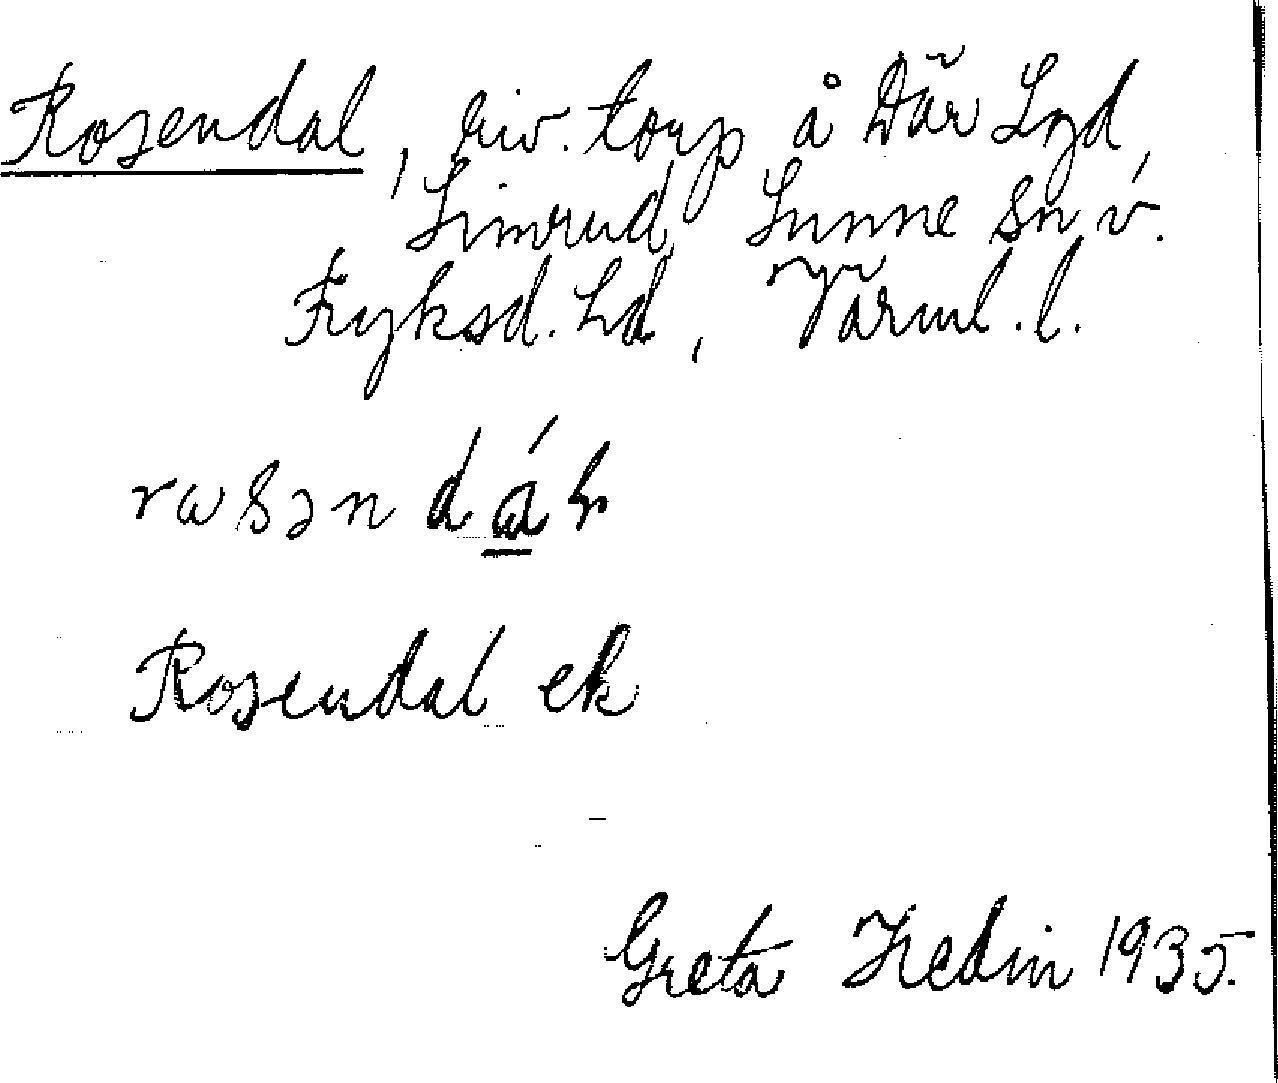 Rosendal, riv. torp å Där Lyd,
Simrud, Sunne sn v.
Fryksd. hd, Värml. l.
rɯsəndá̲ɫ
Rosendal ek
Greta Hedin 1935.